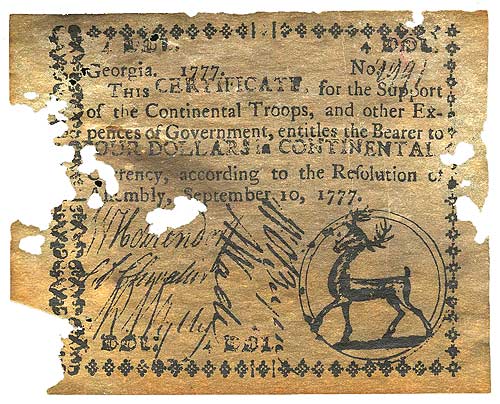 4 DOL. 4 DOL.
Georgia. 1777. No
THIS CERTIFICATE, for the Support
of the Continental Troops, and other Ex-
pences of Government, entitles the Bearer to
OUR DOLLARS in CONTINENTAL
rrency, according to the Resolution of
Assembly, September 10, 1777.
DOL: 4 DOL.